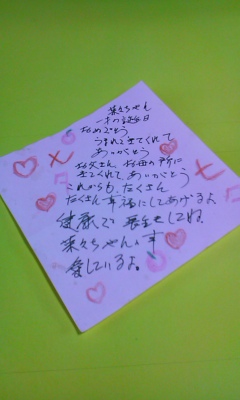 菜々ちゃん
一才の誕生日
おめでとう
うまれてきてくれて
ありがとう
お父さん、お母の所に
きてくれて、ありがとう
これからも、たくさん
たくさん幸福にしてあげるよ
健康で長生きしてね
菜々ちゃん
愛しているよ。